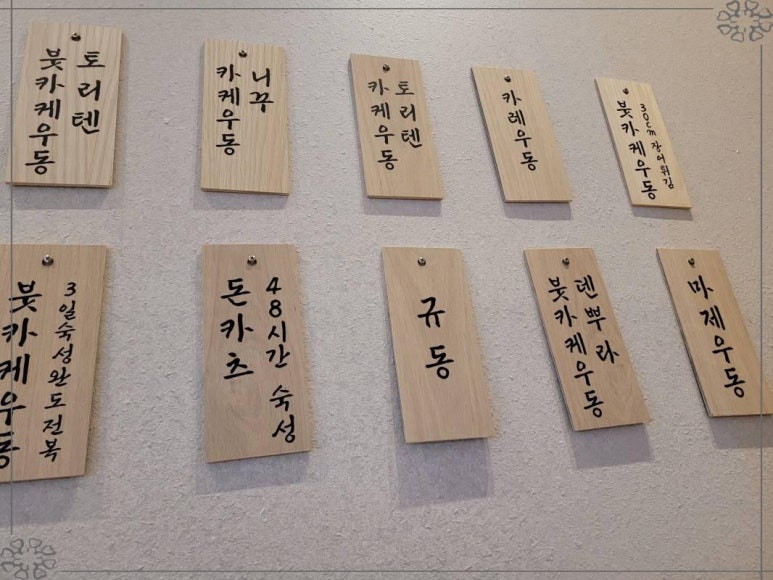 토리텐
붓카케우동
니꾸
카케우동
토리텐
카케우동
카레우동
30cm 장어튀김
붓카케우동
3일숙성완도전복
붓카케우동
48시간 숙성
돈카츠
규동
덴뿌라
붓카케우동
마제우동